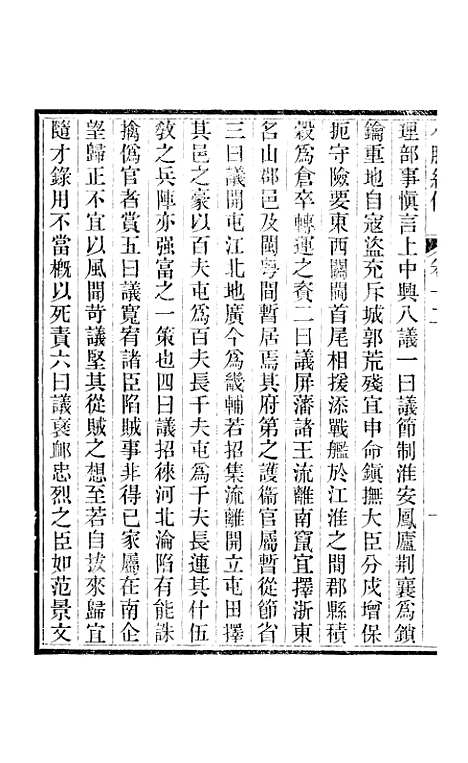 理部事愼言上中興八議一曰議節制淮安鳳廬荆襄爲鎖
鑰重地自寇盜充斥城郭荒殘宜申命鎭撫大臣分戍增保
扼守險要東西關閫首尾相援添戰艦於江淮之間郡縣積
穀爲倉卒轉運之資二曰議屏藩諸王流離南竄宜擇浙東
名山郡邑及閩粤間暫居焉其府第之護衞官屬暫從節省
三曰議開屯江北地廣今爲畿輔若招集流離開立屯田擇
其邑之豪以百夫屯爲百夫長千夫屯爲千夫長蓮其什伍
敎之兵陣亦强富之一策也四曰議招徠河北淪陷有能誅
擒僞官者賞五曰議寬宥諸臣陷賊事非得已家屬在南企
望歸正不宜以風聞苛議堅其從賊之想至若自拔來歸宜
隨才錄用不當槪以死責六曰議襃䘏忠烈之臣如范景文